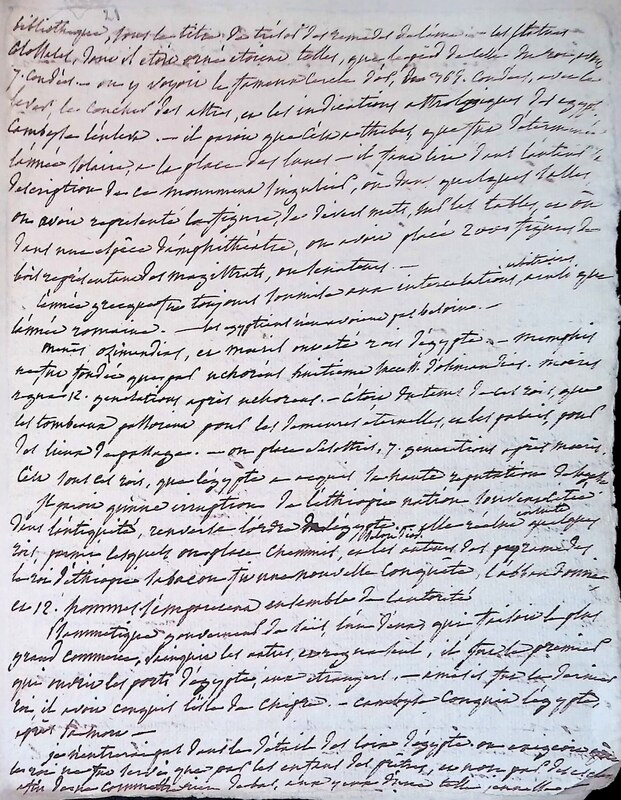 21
bibliotheque, sous le titre de trésor des remedes de l'ame — les statues
colossales, dont il etoit orné etoient telles, que le pied de celle du roi
7. coudées — on y voyoit le fameux cercle d'or, de 365. coudées, avec le
lever le coucher des astres, et les indications astrologiques des egypt
Cambyse l'enleva. — il paroit que c'est a thebes, que fut determinée
l'année solaire, a la place des lunes — il faut lire dans l'antiquité la
description de ce monument singulier, où dans quelques salles
on avoit representé la figure de divers mets, sur les tables, et où
dans une espèce d'amphithéatre, on avoit placé 2000 figures de
bois representant des magistrats, ou senateurs. —
l'année grecque fut toujours soumise aux intercalations, ainsi que
l'année romaine. — les egyptiens n'en avoient pas besoin. —
menès, osimandias, et ont été rois d'égypte — memphis
ne fut fondée que par uchoreus huitieme d'osimandias. moeris
regna 12. générations après uchoreus. — c'étoit du tems de ces rois, que
les tombeaux passoient pour les demeures éternelles, et les palais, pour
des lieux de passage. — on place sesostris, 7. générations après moeris.
C'est sous ces rois, que l'égypte a acquis la haute reputation de
il paroit qu'une irruption de l'ethiopie nation
dans l'antiquité, renversa l'ordre de l'égypte. — elle eut ensuite quelques
rois, parmi lesquels on place chemmis, et les auteurs des pyramides
le roi d'éthiopie sabacon fit une nouvelle conquete, l'abandonna
et 12. hommes s'emparerent ensemble de l'autorité
Psammetique gouverneur de sais, l'un d'eux qui faisoit le plus
grand commerce, vainquit les autres, et regna seul, il fut le premier
qui ouvrit les ports d'égypte, aux étrangers. — amasis fut le dernier
roi, il avoit conquis l'isle de chipre — cambyse conquit l'égypte,
après sa mort —
je n'entrerai pas dans le détail des loix d'égypte on exigeoit
le roi ne fut servi que par les enfans des prêtres, et non par des esclaves